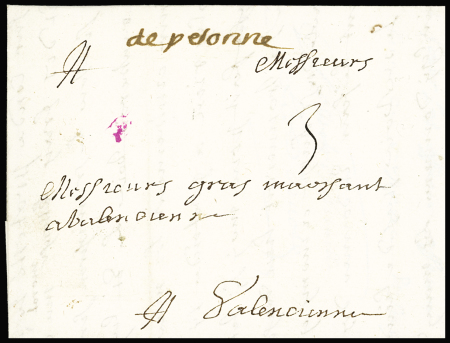 de peronne
A Messieurs
3
Messieurs gras marchant
a valencienne
A Valencienne